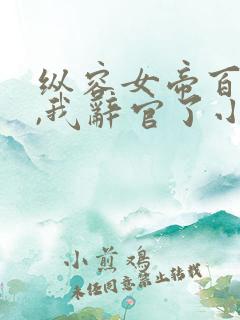 纵容女帝百
,我辞官了小
小煎鸡
未经同意禁止转载